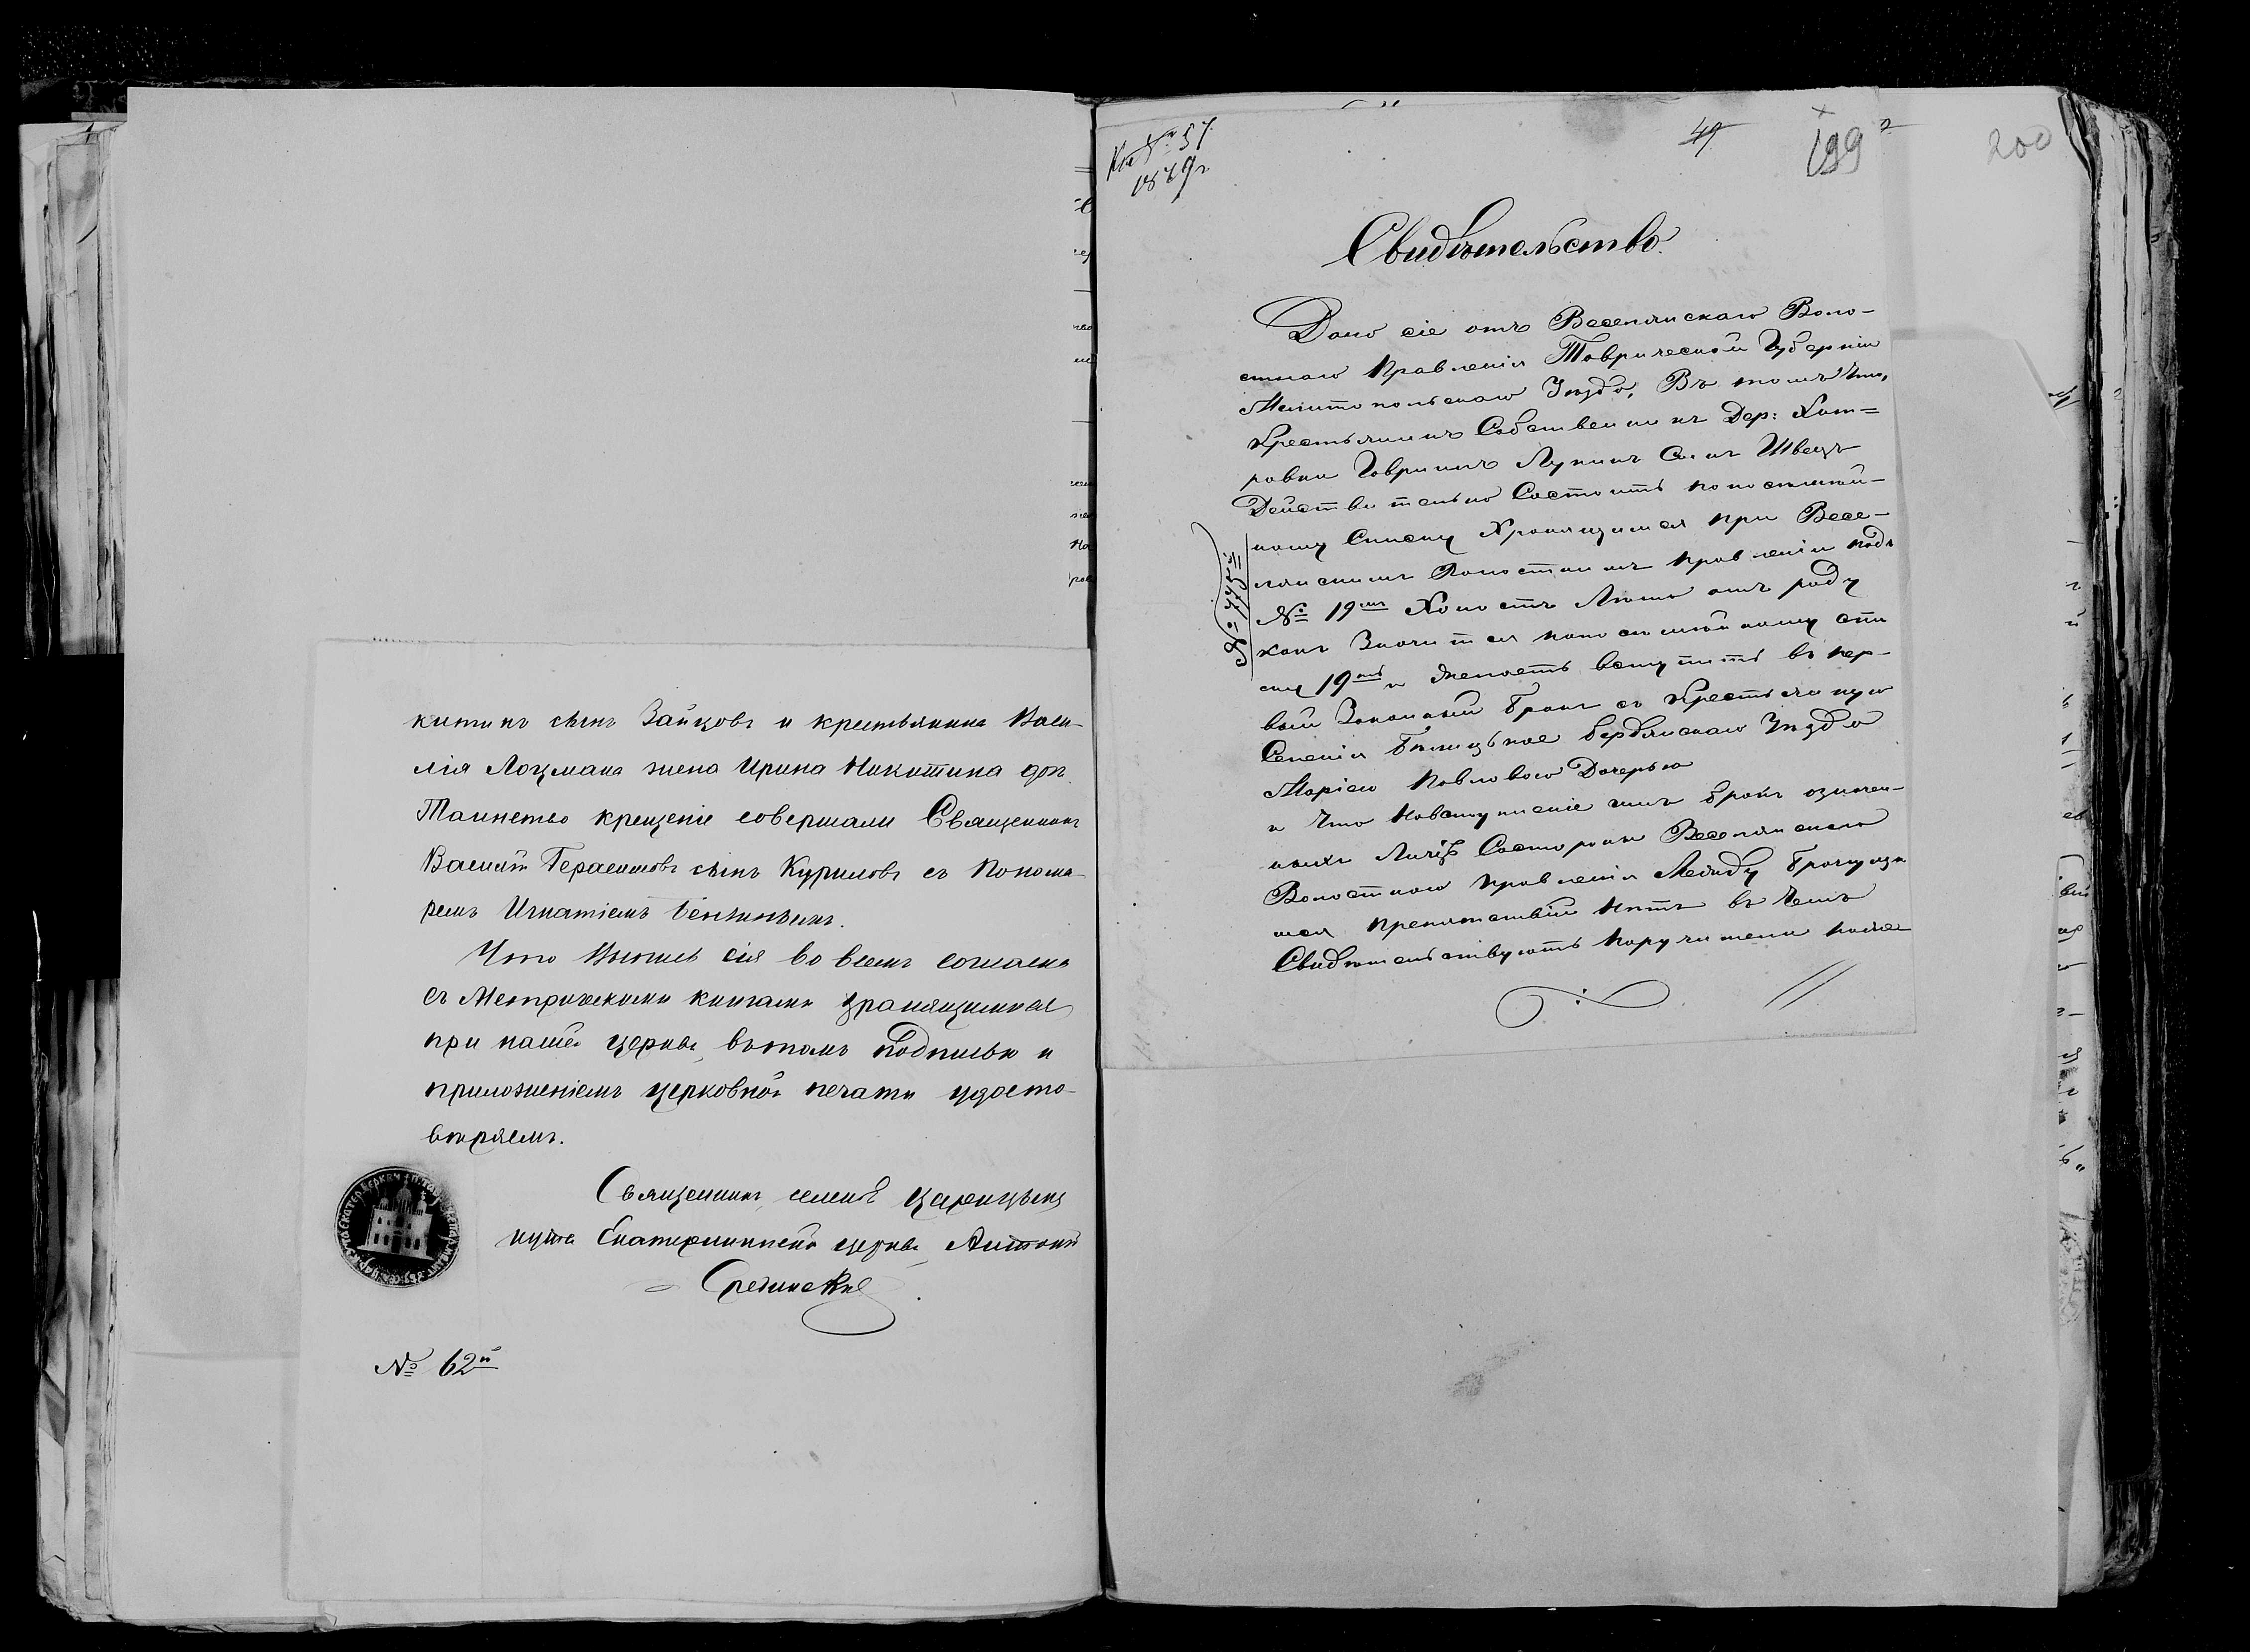 китинъ сынъ Зайцовъ и крестьянина Васи-
лія Лоцмана жена Ирина Никитина доч.
Таинство крещеніе совершали Священникъ
Василій Герасимовъ сынъ Куриловъ съ Понома-
ремъ Игнатіемъ
Что Выпись сія во всемъ согласна
съ Метрическими книгами хранящимися
при нашей церкви, въ томъ подписью и
приложеніемъ церковной печати удосто-
вѣряемъ.
Священникъ, селенія Царицына
кута Екатерининской церкви, Антоній
Срединскій
№ 62й
Къ № 57
1879г
49
199
200
Свидѣтельство.
Дано сіе отъ Веселянскаго Воло-
стнаго Правленія Таврической Губерніи
Мелитопольскаго Уѣзда, Въ томъ что,
Крестьянинъ Собственникъ Дер:
ровки Гавріилъ Лукинъ Сынъ Швецъ
Действительно Состоитъ попосимей-
ному Списку Хранящимся при Весе-
лянскимъ Волостномъ правленіи подъ
№ 19мъ Холостъ Лета отъ роду
какъ Значится попосимейному спи
ску 19ть и Желаетъ вступить въ пер-
вый Законный бракъ съ Крестьянкую
Селенія Бердянскаго Уѣзда
Маріею Павловою Дочерью
и Что Навступленіе имъ бракъ означен-
ныхъ Лицъ Состороны Веселянскаго
Волостнаго правленія Между брачущи
мися препятствій Нетъ въ Чемъ
Свидѣтельствуютъ Поручители